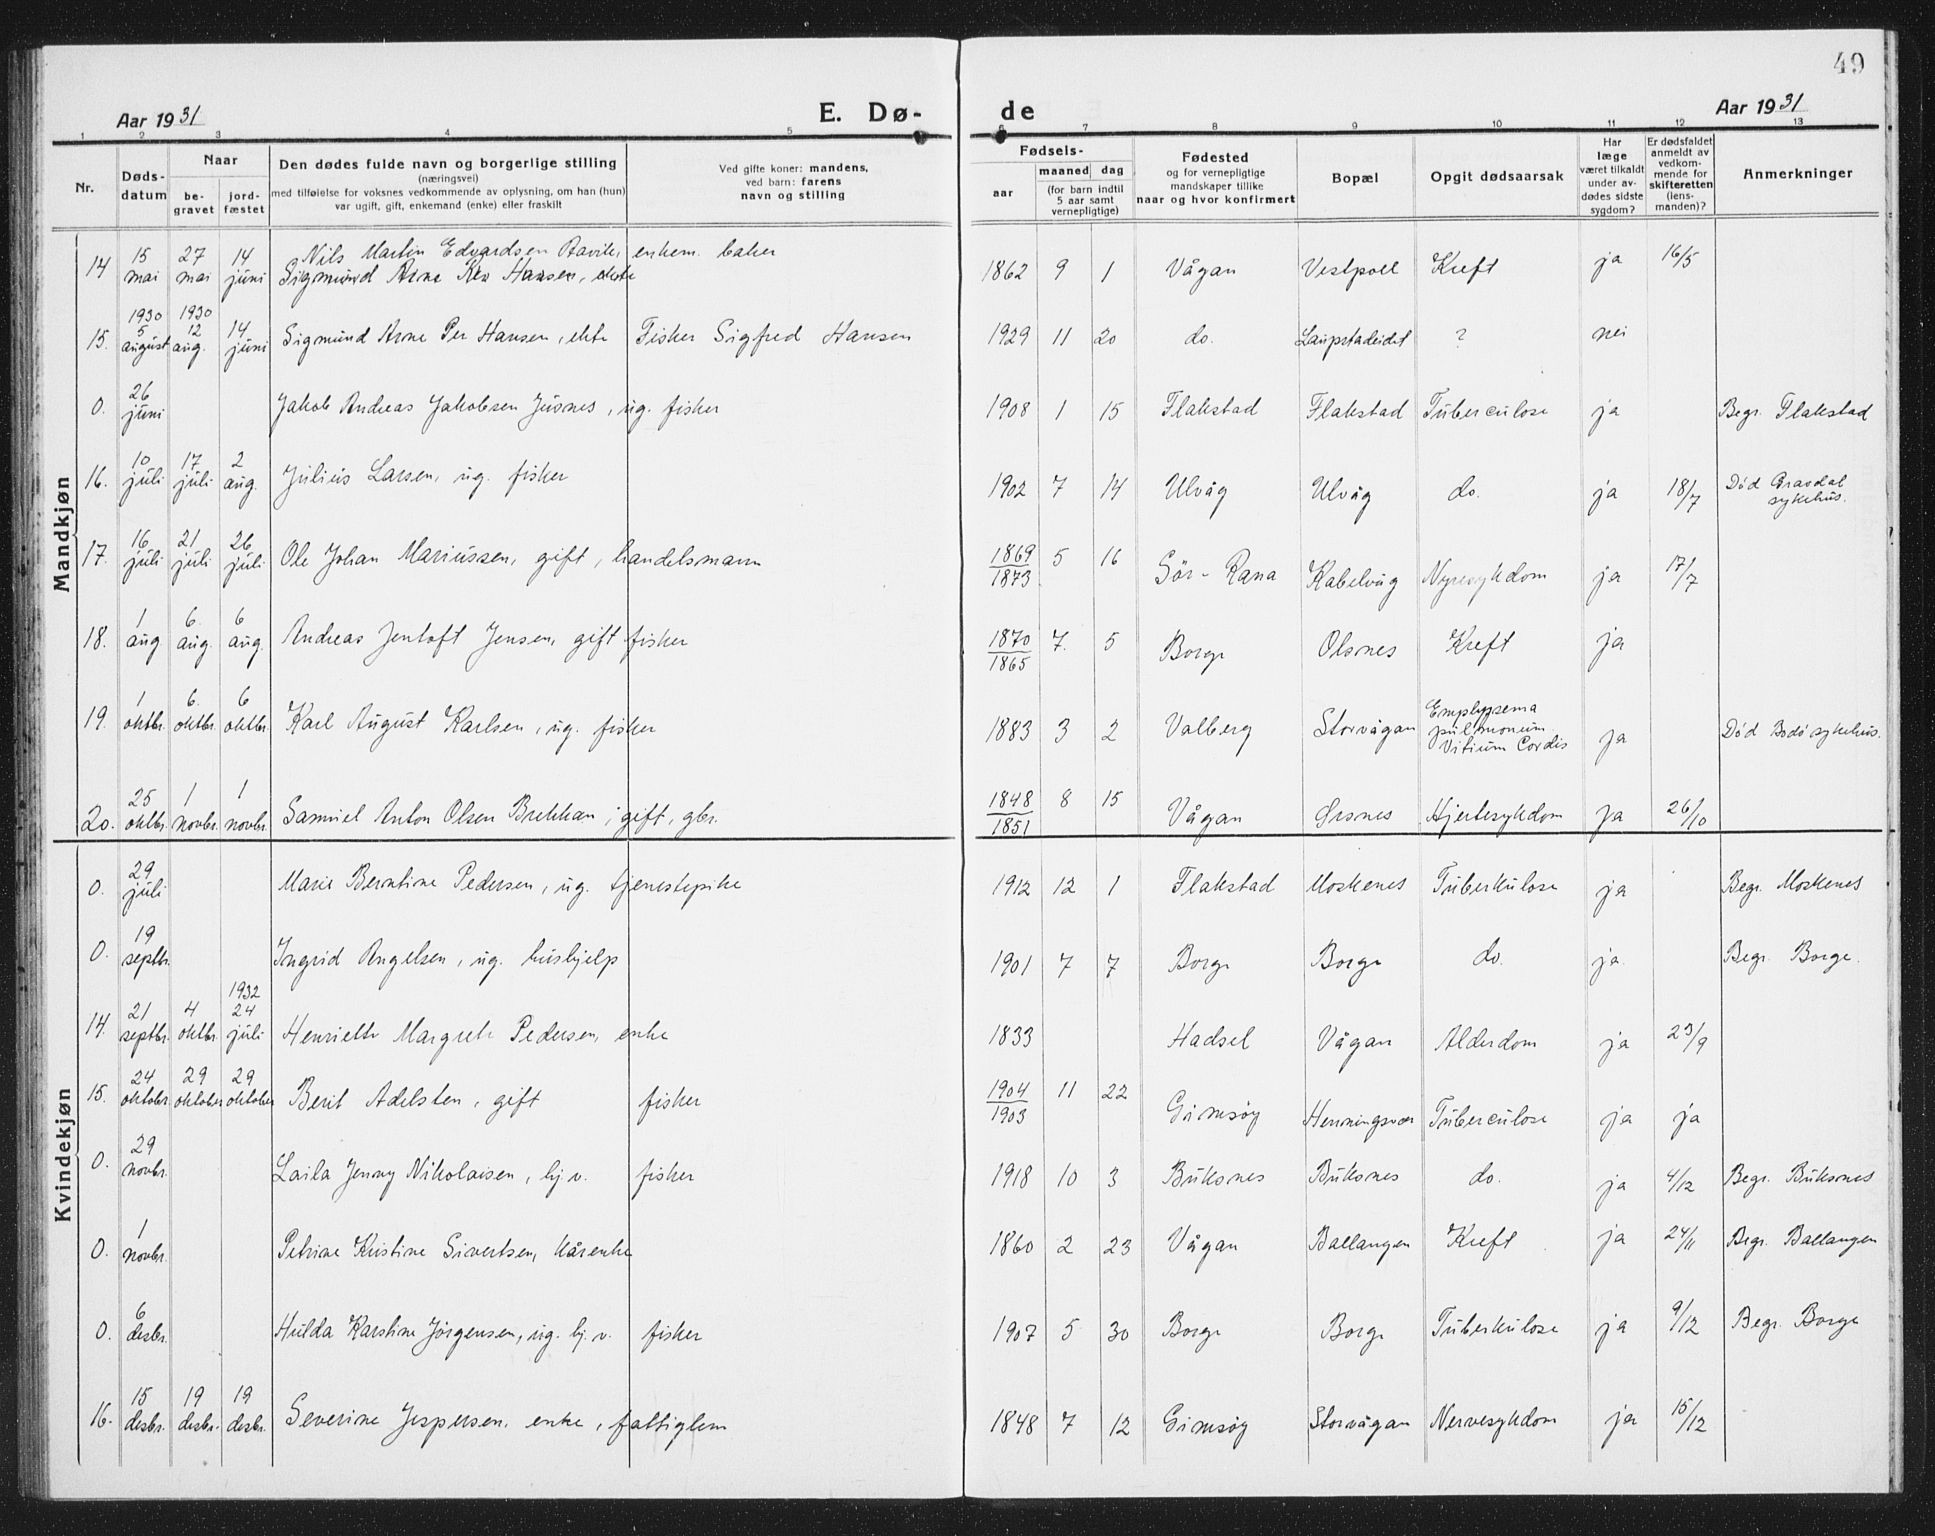 49
Aar 1931 E. Dø- de Aar 1931
1 2 3 4 5 6 7 8 9 10 11 12 13
Nr.
Døds-
datum
Naar
be-
gravet
jord-
fæstet
Den dødes fulde navn og borgerlige stilling
(næringsvei)
med tilføielse for voksnes vedkommende av oplysning, om han (hun)
var ugift, gift, enkemand (enke) eller fraskilt
Ved gifte koner: mandens,
ved barn: farens
navn og stilling
Fødsels-
aar
maaned dag
(for barn indtil
5 aar samt
vernepligtige)
Fødested
og for vernepligtige
mandskaper tillike
naar og hvor konfirmert
Bopæl
Opgit dødsaarsak
Har
læge
været tilkaldt
under av-
dødes sidste
sygdom?
Er dødsfaldet
anmeldt av
vedkom-
mende for
skifteretten
(lens-
manden)?
Anmerkninger
Mandkjøn
14 15 mai 27 mai 14 juni Nils Martin Edvardsen enkem. baker 1862 9 1 Vågan Vestpoll Kreft ja 16/5
Sigmund Arne Hansen, ekte
15. 1930 5 august 1930 12 aug. 14 juni Sigmund Arne Per Hansen, ekte Fisker Sigfred Hansen 1929 11 20 do. Laupstadeidet ? nei
0. 26 juni Jakob Andreas Jakobsen Jusnes, ug. fisker 1908 1 15 Flakstad Flakstad Tuberculose ja Begr. Flakstad
16. 10 juli 17 juli 2 aug. Julius Larsen, ug. fisker 1902 7 14 Ulvåg Ulvåg do. ja 18/7 Død Gravdal sykehus.
17. 16 juli 21 juli 26 juli Ole Johan Mariussen, gift, handelsmann 1869/1873 5 16 Sör-Rana Kabelvåg Nyresykdom ja 17/7
18. 1 aug 6. aug. 6 aug. Andreas Jentoft Jensen, gift fisker 1870/1865 7. 5 Borge Olsnes Kreft ja
19. 1 oktbr. 6. oktbr. 6 oktbr. Karl August Karlsen, ug. fisker 1883 3 2 Valberg Storvågan Emphysema pulmonum. Vitium Cordis ja Död Bodö sykehus.
20. 25 oktbr. 1 novbr. 1 novbr. Samuel Anton Olsen Brekkan, gift, gbr. 1848/1851 8 15 Vågan Ørsnes Hjertesykdom ja 26/10
Kvindekjøn
0. 29 juli Marie Berntine Pedersen, ug. tjenestepike 1912 12 1 Flakstad Moskenes Tuberkulose ja Begr. Moskenes
0. 19 septbr. Ingrid Angelsen, ug. hushjelp 1901 7 7 Borge Borge do. ja. Begr. Borge.
14. 21 septbr. 4 oktbr. 1932 24 juli Henriette Margrete Pedersen, enke 1833 Hadsel Vågan Alderdom ja 23/9
15. 24 oktober 29 oktober 29 oktober Berit Adelsten, gift fisker 1904/1903 11 22 Gimsøy Henningsvær Tuberculose ja ja
0. 29 novbr. Laila Jenny Nikolaisen, hj. v. fisker 1918 10 3 Buksnes Buksnes do. ja 4/12 Begr. Buksnes
0. 1 novbr. Petrine Kristine Sivertsen, kårenke 1860 2 23 Vågan Ballangen Kreft ja 24/11 Begr. Ballangen
0. 6 desbr. Hulda Karstine Jörgensen, ug. hj. v. fisker 1907 5 30 Borge Borge Tuberkulose ja 9/12 Begr. Borge
16. 15 desbr. 19 desbr. 19 desbr. Severine Jespersen, enke, fattiglem 1848 7 12 Gimsøy Storvågan Nervesykdom ja 15/12